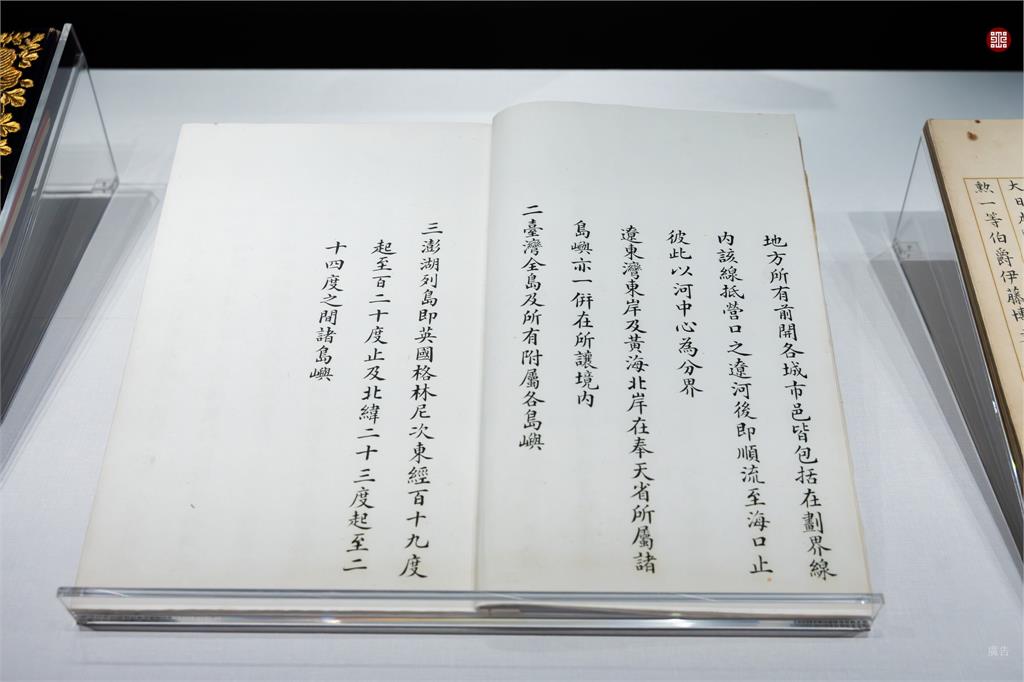 地方所有前開各城市邑皆包括在劃界線
內該線抵營口之遼河後即順流至海口止
彼此以河中心為分界
遼東灣東岸及黃海北岸在奉天省所屬諸
島嶼亦一併在所讓境內
二臺灣全島及所有附屬各島嶼
三澎湖列島即英國格林尼次東經百十九度
起至百二十度止及北緯二十三度起至二
十四度之間諸島嶼
勲一等伯爵伊藤博
廣告